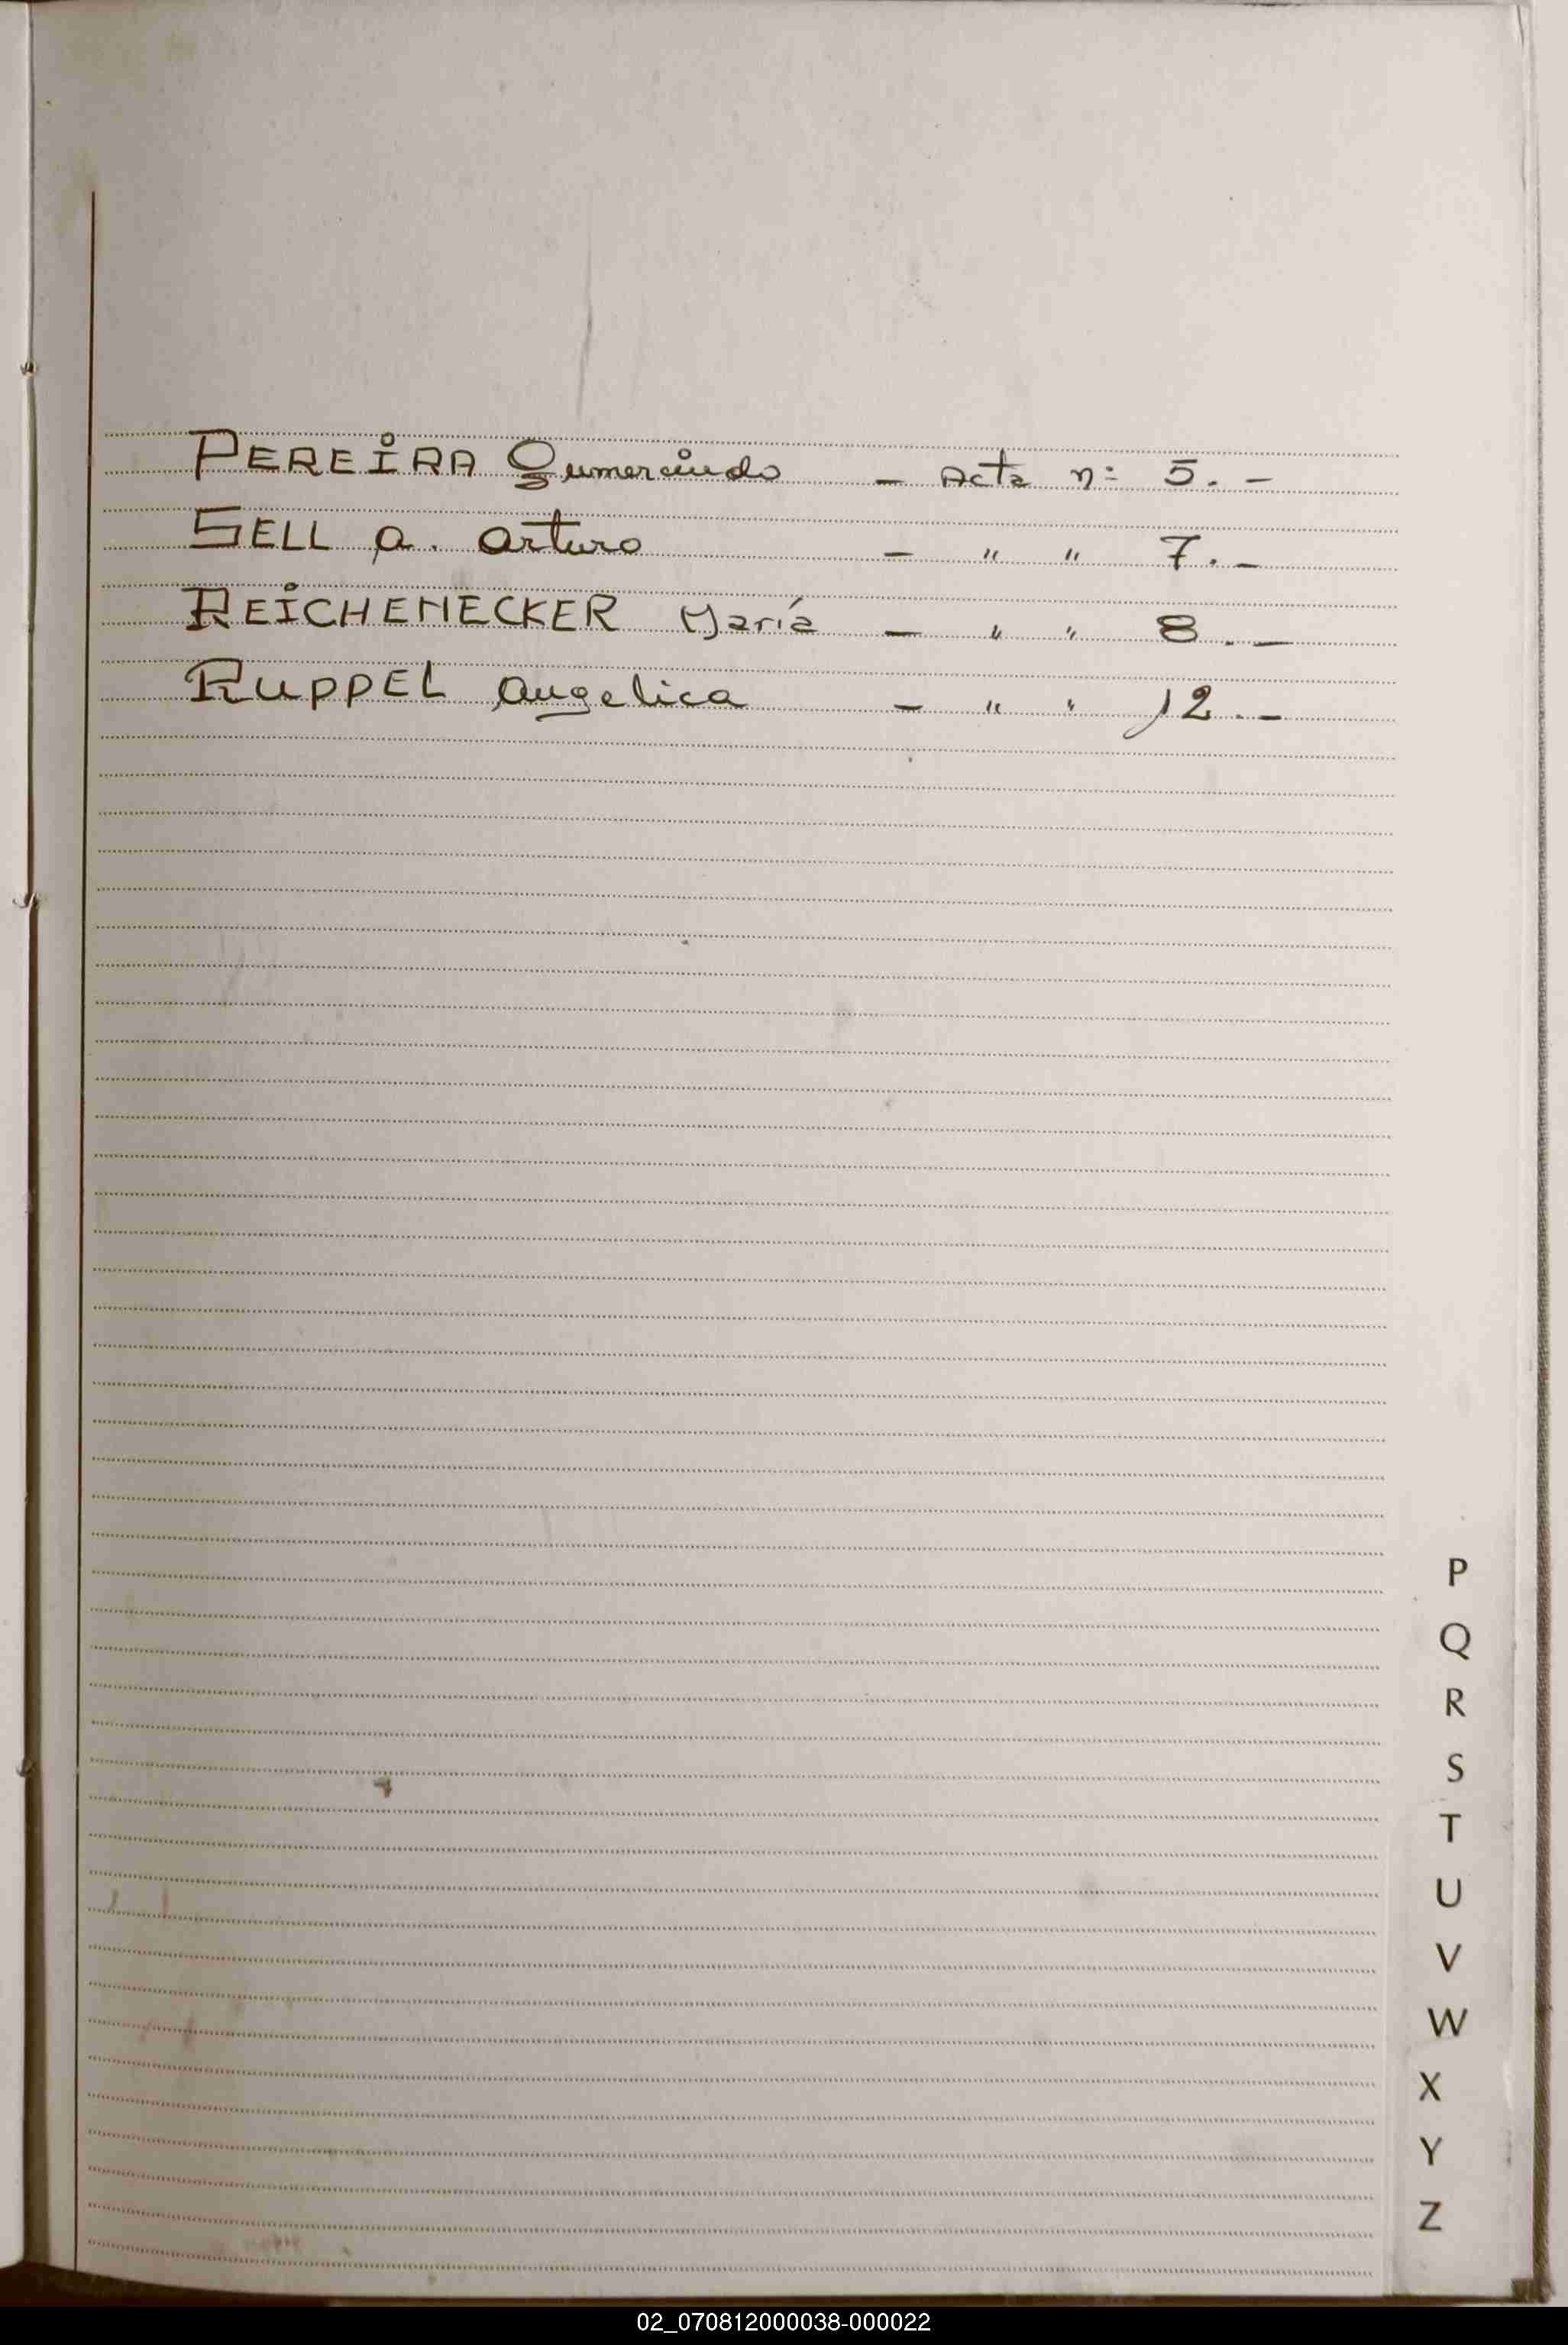 PEREIRA Gumercindo - Acta nº 5. -
SELL A. Arturo - " " 7. -
REICHENECKER María - " " 8. -
RUPPEL Angelica - " " 12. -
P
Q
R
S
T
U
V
W
X
Y
Z
02_070812000038-000022